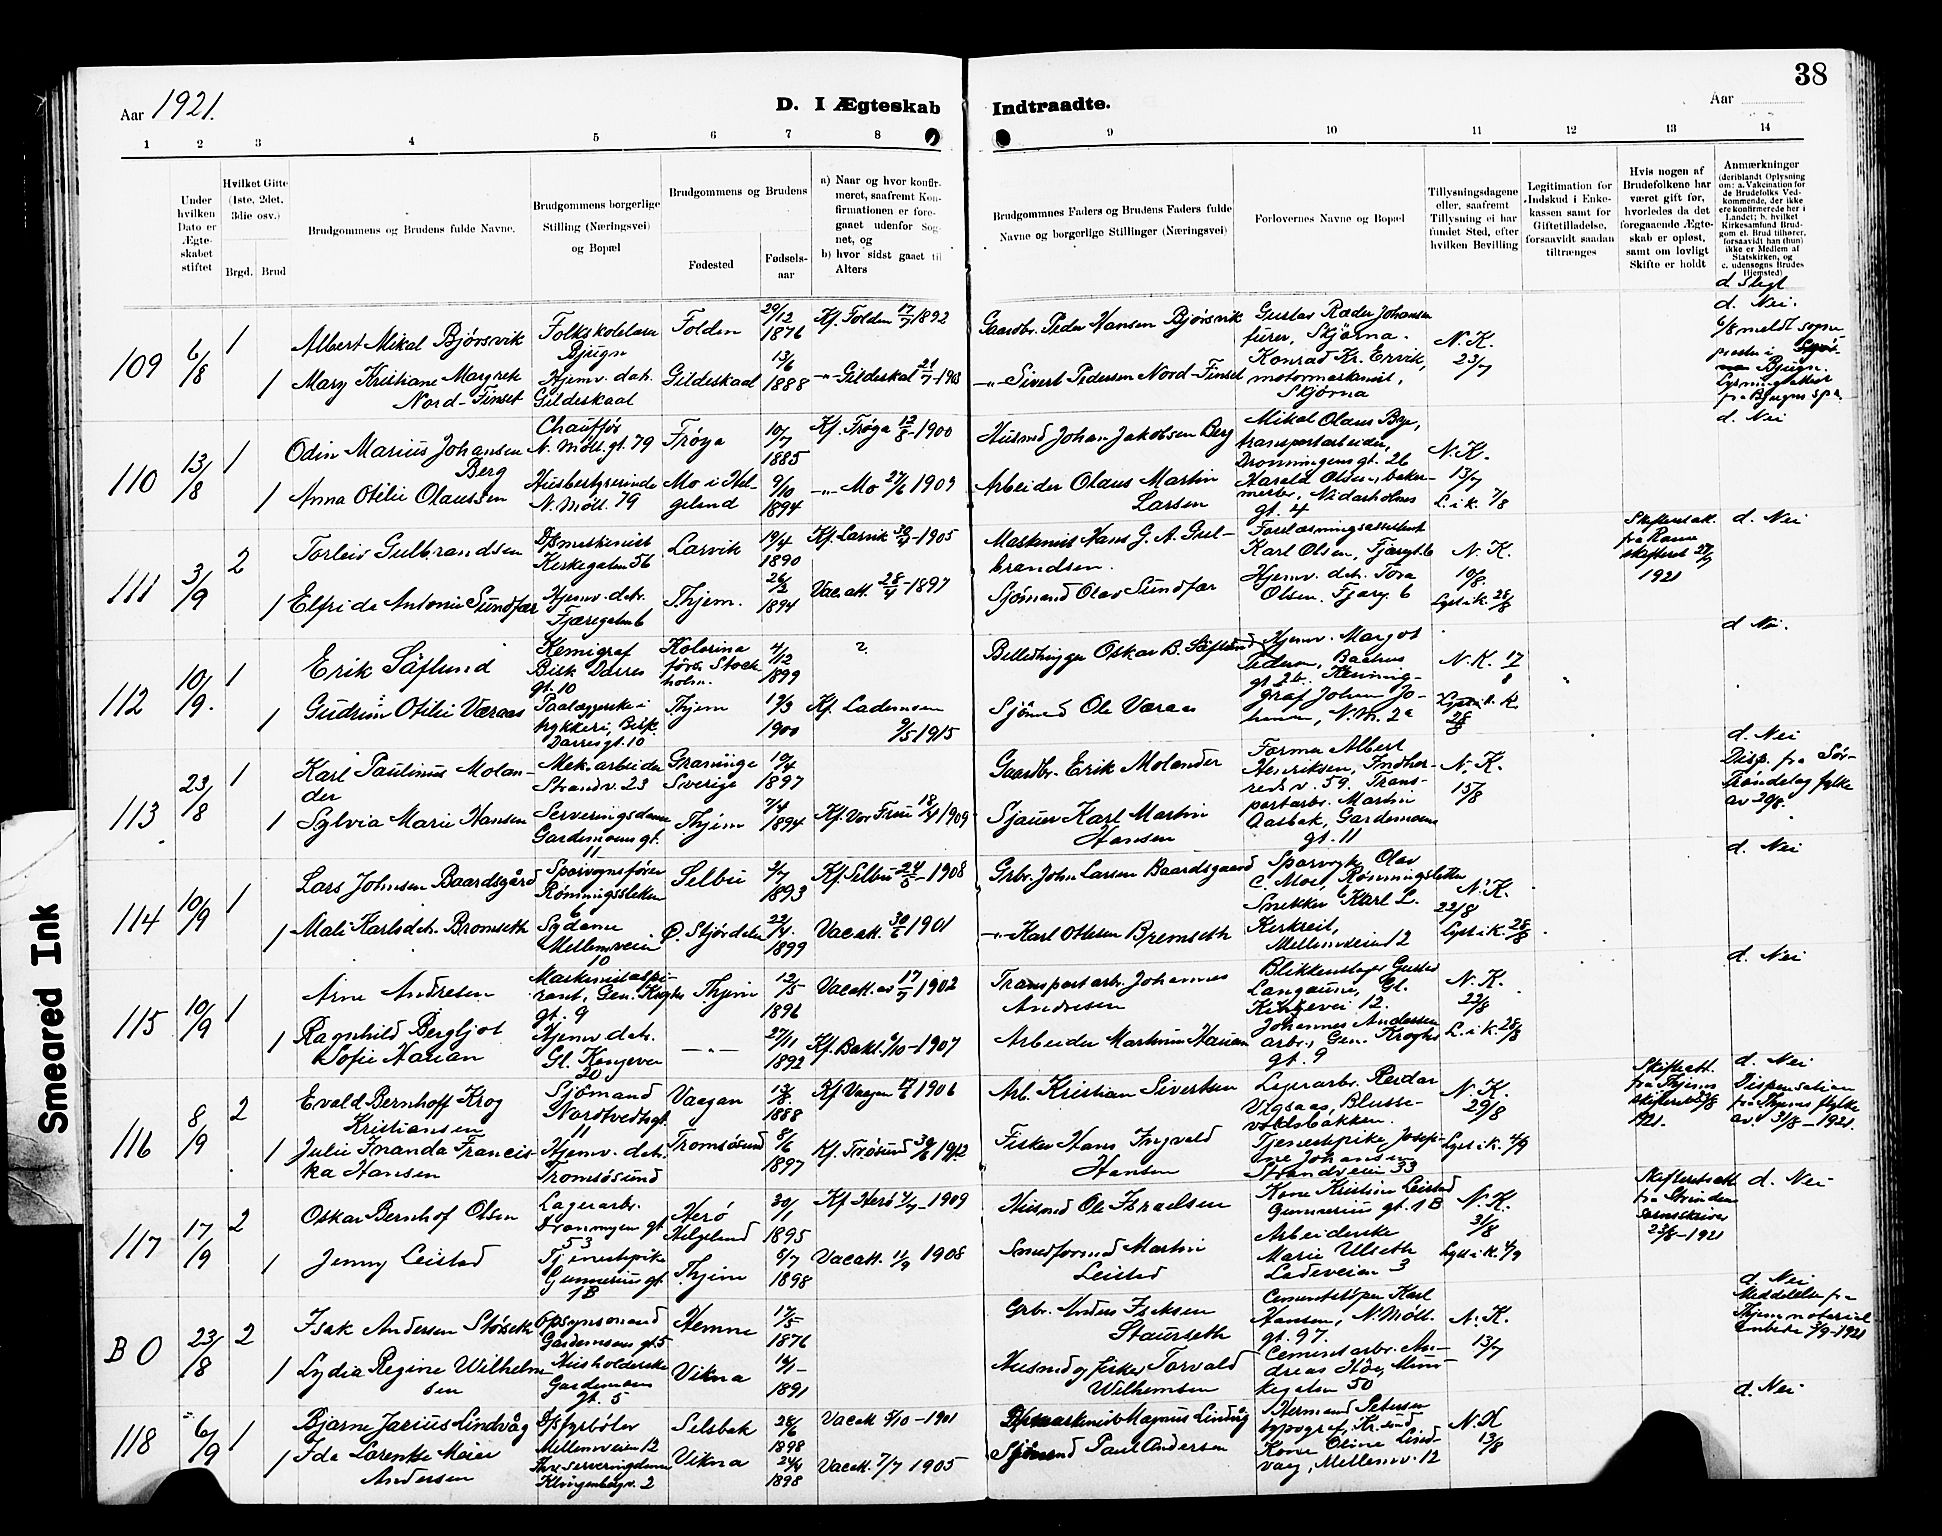 38
Aar 1921.
D. I Ægteskab Indtraadte.
Aar
1 2 3 4 5 6 7 8 9 10 11 12 13 14
Under hvilken Dato er Ægteskabet stiftet
Hvilket Gifte (1ste, 2det, 3die osv.)
Brgd. Brud
Brudgommens og Brudens fulde Navne.
Brudgommens borgerlige Stilling (Næringsvei) og Bopæl
Brudgommens og Brudens
Fødested
Fødselsaar
a) Naar og hvor konfirmeret, saafremt Konfirmationen er foregaaet udenfor Sognet, og
b) hvor sidst gaaet til Alters
Brudgommnes Faders og Brudens Faders fulde Navne og borgerlige Stillinger (Næringsvei)
Forlovernes Navne og Bopæl
Tillysningsdagene eller, saafremt Tillysning ei har fundet Sted, efter hvilken Bevilling
Legitimation for Indskud i Enkekassen samt for Giftetilladelse, forsaavidt saadan tiltrænges
Hvis nogen af Brudefolkene har været gift før, hvorledes da det foregaaende Ægteskab er opløst, samt om lovligt Skifte er holdt
Anmærkninger (deriblandt Oplysning om: a. Vakcination for de Brudefolks Vedkommende, der ikke ere konfirmerede her i Landet; b. hvilket Kirkesamfund Brudgom el. Brud tilhører, forsaavidt han (hun) ikke er Medlem af Statskirken, og c. udensogns Brudes Hjemsted)
109 6/8 1 Albert Mikal Bjørsvik
Folkskolelærer Bjugn
Folden 29/12 1876
Kf. Folden 17/7 1892
Gaardbr. Peder Hansen Bjørsvik
Gustav Ræder Johansen
Skjørna.
N.K. 23/7
d. Nei.
1 Mary Kristiane Margrete Nord-Finset
Hjemv. dat. Gildeskaal
Gildeskaal 13/6 1888
Gildeskal 21/7-1903
Sivert Pedersen Nord-Finset
Konrad Kr. Ervik, motormaskinist, Skjørna
110 13/8 1 Odin Marius Johansen Berg
Chauffør N. Møll. gt. 79
Frøya 10/7 1885
Kf. Frøya 12/8-1900
Husmd Johan Jakobsen Berg
Mikal Olaus Bye, transportarbeider, Dronningens gt. 26
N.K. 13/7
d. Nei
1 Anna Otilie Olaussen
Husbestyrerinde N. Møll. 79
Mo i Helgeland 9/10 1894
Mo 27/6 1909
Arbeider Olaus Martin Larsen
Harald Olsen, Nidarholms gt. 4
L. i k. 7/8
111 3/9 2 Torleiv Gulbrandsen
Kirkegaten 56
Larvik 19/4 1890
Kf. Larvik 30/4-1905
Maskinist Hans G. A. Gulbrandsen.
Karl Olsen, Fjæregt. 6
N.K. 10/8.
1921
d. Nei
1 Elfrida Antonie Sundfær
Hjemv. dat. Fjæregaten 6
Thjem. 26/2 1894
Vac. att. 28/4-1897
Sjømand Olav Sundfær
Hjemv. dat. Tora Olsen. Fjæreg. 6
Lyst i k. 28/8
112 10/9. 1 Erik Säflund
Kemigraf Bisk Darres gt. 10
Stockholm. 4/12 1899
?
Oskar B. Säflund
Hjemv. Margot
N.K. 17/8
d. Nei.
1 Gudrun Otilie Væraas
Bisk. Darres gt. 10
Thjem 19/3 1900
Kf. Lademoen 9/5 1915
Sjømd Ole Væraas
N.M. 2a
28/8
113 23/8 1 Karl Paulinus Molander
Mek. arbeider Strandv. 23
Graninge Sverige 19/4 1897
Gaardbr. Erik Molander
Former Albert Henriksen, Indherredsv. 59.
N.K. 15/8
d. Nei
Disp. fra Sør-Trøndelag fylke av 20/8.
1 Sylvia Marie Hansen
Serveringsdame Gardemoens gt. 11
Thjem 7/4 1894
Kf. Vor Frue 18/4 1909
Sjauer Karl Martin Hansen
Transportarb. Martin Aasbak, Gardemoens gt. 11
114 10/9 1 Lars Johnsen Baardsgård
Sporvognsfører Rønningssletten 6
Selbu 2/7 1893
Kf. Selbu 24/5-1908
Grbr. John Larsen Baardsgaard
Olav C. Moe, Rønningsletten
N.K. 22/8
d. Nei
1 Mali Karlsdat. Bremseth
Sydame Mellemveien 10
Ø. Stjørdalen 22/4 1899
Vac att. 30/6 1901
Karl Ottesen Bremseth
Snekker Karl L. Kirkreit, Mellemveien 12
Lyst i k. 28/8
115 10/9 1 Arne Andresen
Maskinistaspirant, Gen. Kroghs gt. 9
Thjem 12/5 1896
Vac att. av 17/7 1902
Transportarb. Johannes Andresen
Blikkenslager Gustav Langaune, Gl. Kongevei 12.
N.K. 22/8
d. Nei
1 Ragnhild Bergljot Sofie Harian
Hjemv. dat. Gl. Kongevei 20
27/11 1892
Kf. Bakl. 6/10-1907
Arbeider Martinus Harian
Johannes Andersen arb., Gen. Kroghs gt. 9
L. i k. 28/8
116 8/9 2 Evald Bernhoff Krog Kristiansen
Sjømand Nordtvedtsgt. 11
Vaagan 1888
Kf Vaagan 1906
Arb. Kristian Sivertsen
Reidar Vigsaas, Blussevoldsbakken.
N.K. 29/8
1921.
d. Nei
Dispensation fra Thjems fylke av 31/8-1921.
1 Julie Inanda Franciska Hansen
Hjemv. dat. Tromsøsund
Tromsøsund 8/6 1897
Kf. Tr.øsund 30/6 1912
Fisker Hans Ingvald Hansen
Tjenestepike Josefine Johansen Strandveien 33
Lyst i k. 4/9
117 17/9 2 Oskar Bernhof Olsen
Lagerarb. Dronningen gt. 53
Herø Helgeland 30/1 1895
Kf Herø 1909
Husmd Ole Israelsen
Kone Kristine Leistad Gunnerius gt. 1B
N.K. 31/8
Skifteratt. fra Strinden sorenskriver 23/8-1921
d. Nei
1 Jenny Leistad
Tjenestepike Gunnerius gt. 1B
Thjem 6/7 1898
Vac att. 11/9 1908
Martin Leistad
Arbeiderske Marie Ulseth Ladeveien 3
Lyst i k. 4/9
B 0 23/8 2 Isak Andersen Størseth
Opsynsmand Gardemoens gt. 5
Hemne 17/5 1876
Grbr. Anders Isaksen Staurseth
Cementstøper Karl Hansen, N. Møll. gt. 97.
N.K. 13/7
d. Nei
Meddelelse fra Thjem notarialembede 3/9-1921
1 Lydia Regine Wilhelmsen
Husholderske Gardemoens gt. 5
Vikna 1891
Husmd og fisker Torvald Wilhemsen
Cementarb. Andreas Munkegaten 50
118 6/9 1 Bjarne Jarius Lindvåg
Mellemveien 12
Selsbak 28/6 1898
Vac att 5/10-1901
Magnus Lindvåg
Hermand Petersen typograf
N.K 13/8
d. Nei
1 Ida Lorentze Meier Andersen
Klingenbergv. 2
Vikna 24/4 1898
Vac att. 7/7 1905
Sjømand Paul Andersen
Kone Oline Lindvaag, Mellemv. 12
Smeared Ink